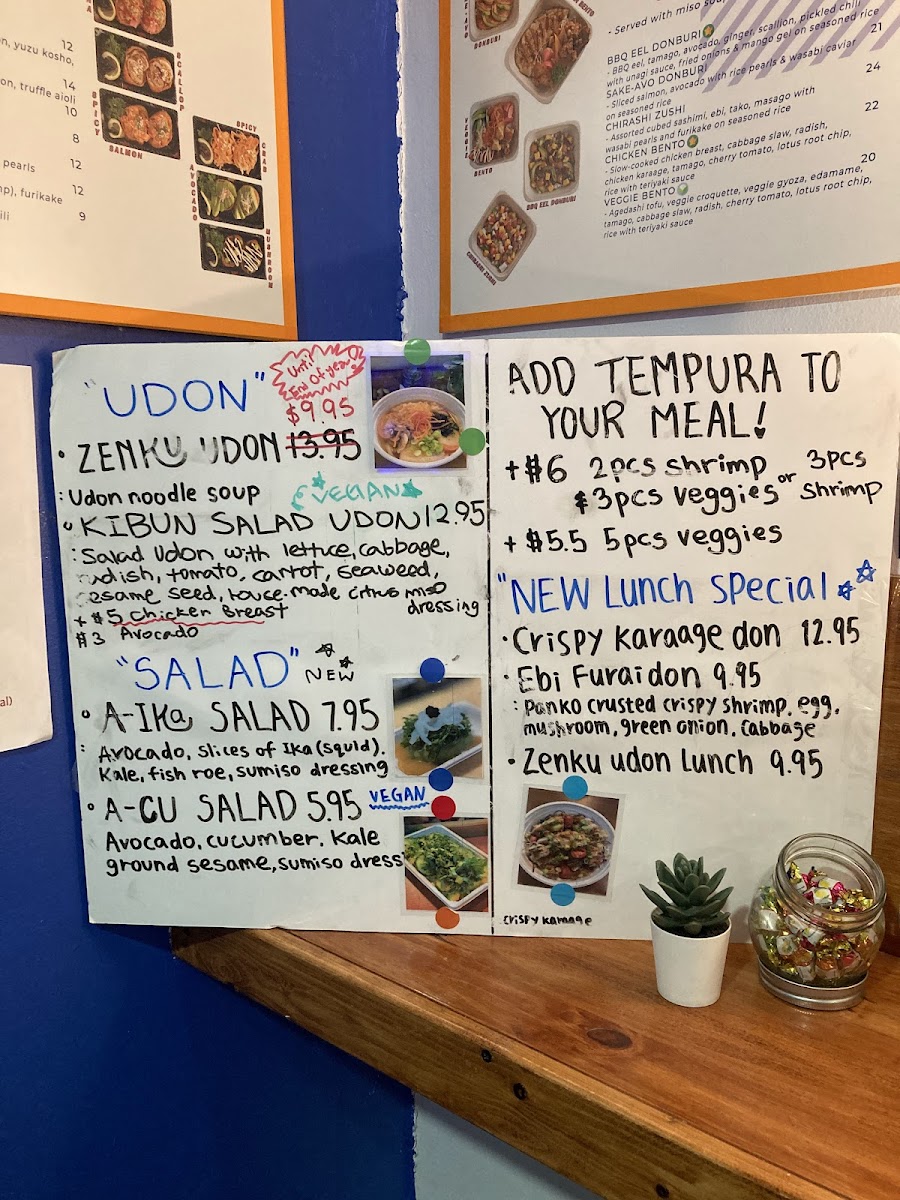 12
n, yuzu kosho,
14
on, truffle aioli
10
8
pearls
12
12
np), furikake
ili
9
SCALLOP
SPICY
SALMON
SPICY
CRAB
AVOCADO
MUSHROOM
al)
DONBURI
BENTO
VEGGIE
BENTO
BBQ EEL DONBURI
CHIRASHI ZUSHI
- Served with miso soup
BBQ EEL DONBURI
- BBQ eel, tamago, avocado, ginger, scallion, pickled chili
with unagi sauce, fried onions & mango gel on seasoned rice
21
SAKE-AVO DONBURI
- Sliced salmon, avocado with rice pearls & wasabi caviar
on seasoned rice
24
CHIRASHI ZUSHI
- Assorted cubed sashimi, ebi, tako, masago with
wasabi pearls and furikake on seasoned rice
22
CHICKEN BENTO
- Slow-cooked chicken breast, cabbage slaw, radish,
chicken karaage, tamago, cherry tomato, lotus root chip,
rice with teriyaki sauce
20
VEGGIE BENTO
- Agedashi tofu, veggie croquette, veggie gyoza, edamame,
tamago, cabbage slaw, radish, cherry tomato, lotus root chip,
rice with teriyaki sauce
"UDON"
Until
End of year
$9.95
• ZENKU UDON 13.95
: Udon noodle soup
VEGAN
• KIBUN SALAD UDON 12.95
: Salad Udon with lettuce, cabbage,
radish, tomato, carrot, seaweed,
sesame seed, house-made citrus miso
dressing
+ $5 Chicken Breast
$3 Avocado
"SALAD" NEW
• A-IKa SALAD 7.95
: Avocado, slices of Ika (squid).
Kale, fish roe, sumiso dressing
• A-CU SALAD 5.95 VEGAN
Avocado, cucumber. Kale
ground sesame, sumiso dress
ADD TEMPURA TO
YOUR MEAL!
+ $6 2pcs shrimp
& 3pcs veggies
or 3pcs
shrimp
+ $5.5 5pcs veggies
"NEW Lunch Special
• Crispy Karaage don 12.95
• Ebi Furai don 9.95
: Panko crusted crispy shrimp, egg,
mushroom, green onion, cabbage
• Zenku udon Lunch 9.95
crispy karaage